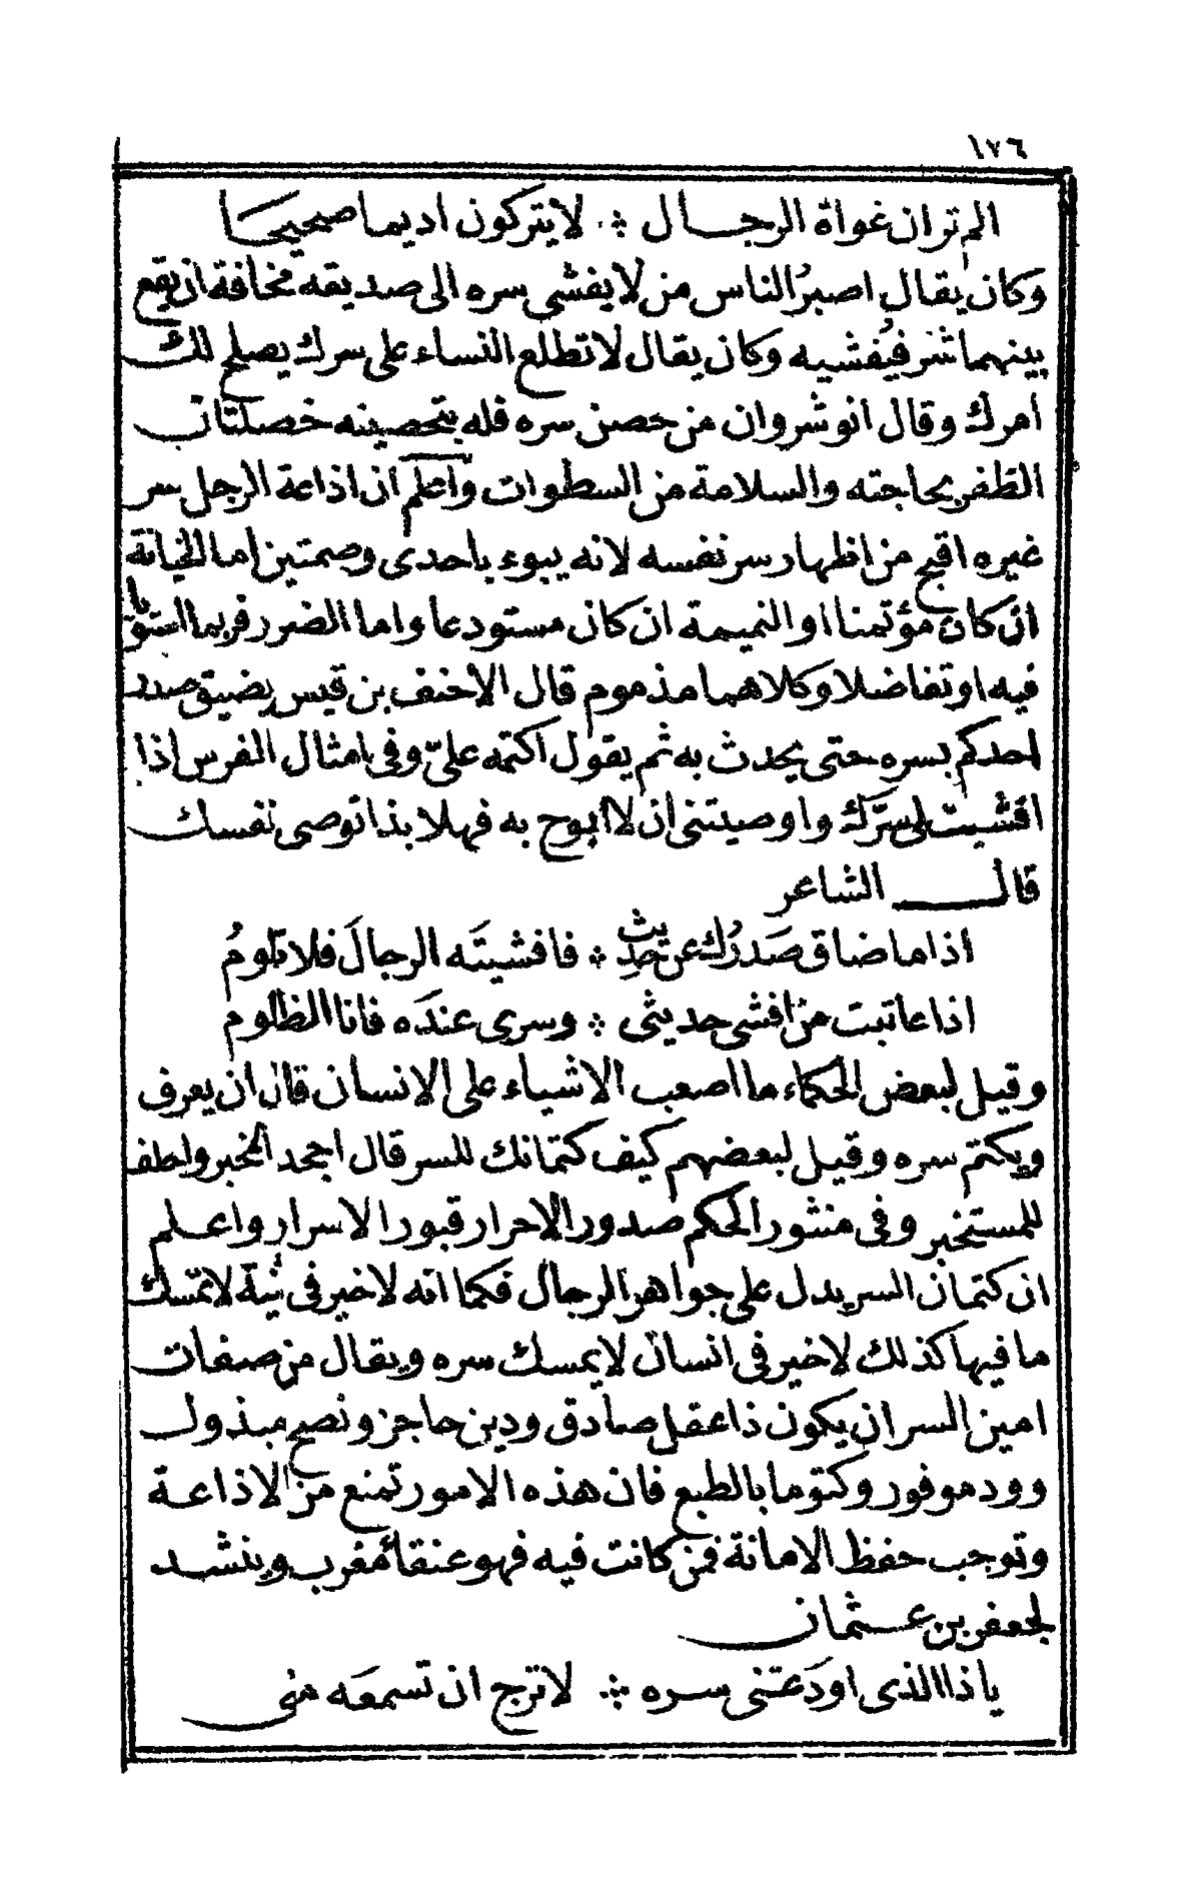 ١٧٦
الم تران غواة الرجـــال ؞ لا يتركون اديما صحيحـا
وكان يقال اصبرُ الناس من لا يفشى سره الى صديقه مخافة ان يقع
بينهما شر فيُفشيه وكان يقال لا تطلع النساء على سرك يصلح لك
امرك وقال انوشروان من حصن سره فله بتحصينه خصلتان
الظفر بحاجته والسلامة من السطوات واعلم ان اذاعة الرجل سر
غيره اقبح من اظهار سر نفسه لانه يبوء باحدى وصمتين اما الخيانة
ان كان مؤتمنا او النميمة ان كان مستودعا واما الضرر فربما استويا
فيه او تفاضلا وكلاهما مذموم قال الاحنف بن قيس يضيق صدر
احدكم بسره حتى يحدث به ثم يقول اكتمه علىّ وفى امثال الفرس اذا
افشيت لى سرّك واوصيتنى ان لا ابوح به فهلا بذا توصى نفسك
قالـــــ الشاعر
اذا ما ضاق صَدرُك عن حديث ؞ فافشيتَه الرجالَ فلا تلومُ
اذا عاتبت من افشى حديثى ؞ وسرى عندَه فانا الظلوم
وقيل لبعض الحكماء ما اصعب الاشياء على الانسان قال ان يعرف
ويكتم سره وقيل لبعضهم كيف كتمانك للسر قال اجحد الخبر واحلف
للمستخبر وفى منثور الحكم صدور الاحرار قبور الاسرار واعلم
ان كتمان السر يدل على جواهر الرجال فكما انه لا خير فى آنية لا تمسك
ما فيها كذلك لا خير فى انسان لا يمسك سره ويقال من صفات
امين السر ان يكون ذا عقل صادق ودين حاجز ونصح مبذول
وود موفور وكتوما بالطبع فان هذه الامور تمنع من الاذاعة
وتوجب حفظ الامانة فمن كانت فيه فهو عنقاُ مغرب وينشد
لجعفر بن عـثمان
يا ذا الذى اودَعتنى سره ؞ لا ترج ان تسمعَه منى